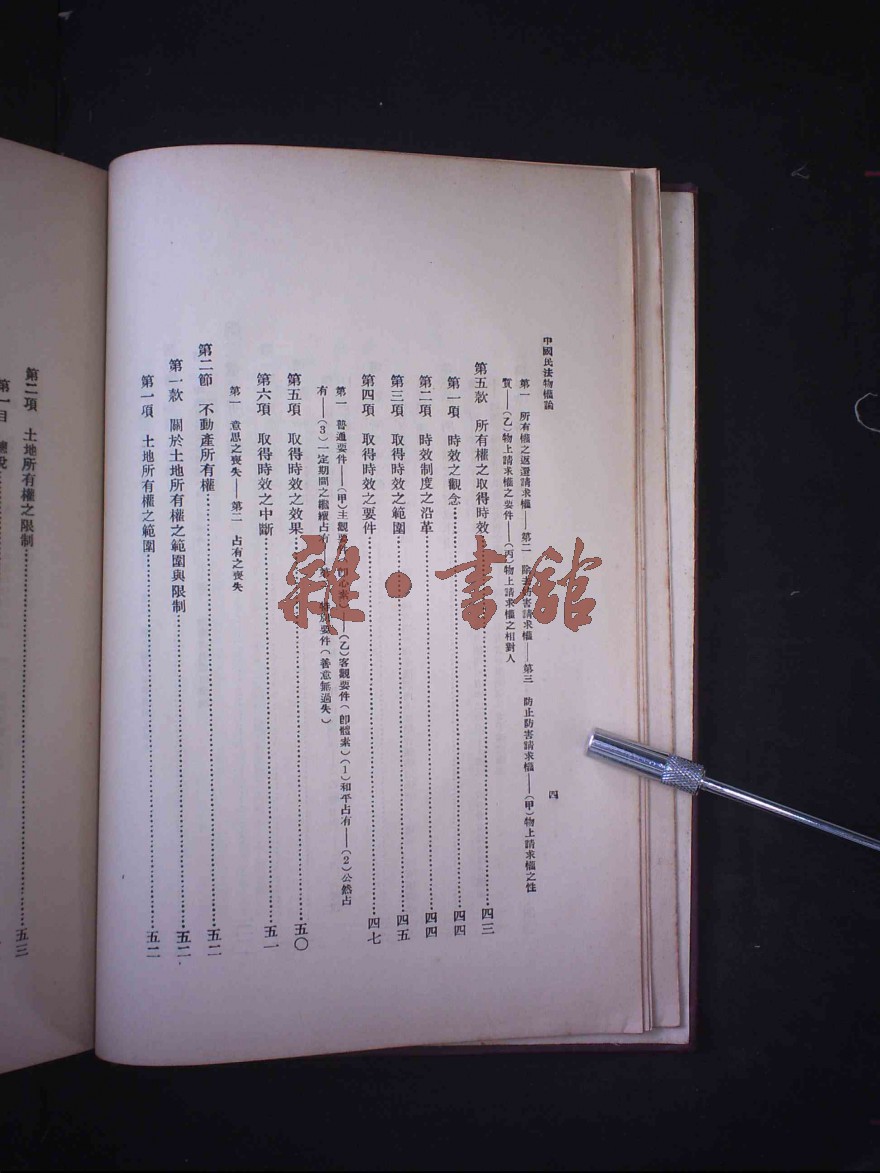 中國民法物權論
四
第一 所有權之返還請求權——第二 除去妨害請求權——第三 防止妨害請求權——(甲)物上請求權之性
質——(乙)物上請求權之要件——(丙)物上請求權之相對人
第五款 所有權之取得時效…………四三
第一項 時效之觀念…………四四
第二項 時效制度之沿革…………四四
第三項 取得時效之範圍…………四五
第四項 取得時效之要件…………四七
第一 普通要件——(甲)主觀要件(即心素)——(乙)客觀要件(即體素)(1)和平占有——(2)公然占
有——(3)一定期間之繼續占有——第二 特別要件(善意無過失)
第五項 取得時效之效果…………五〇
第六項 取得時效之中斷…………五一
第一 意思之喪失——第二 占有之喪失
第二節 不動產所有權…………五二
第一款 關於土地所有權之範圍與限制…………五二
第一項 土地所有權之範圍…………五二
第二項 土地所有權之限制…………五三
第一目
雜·書館